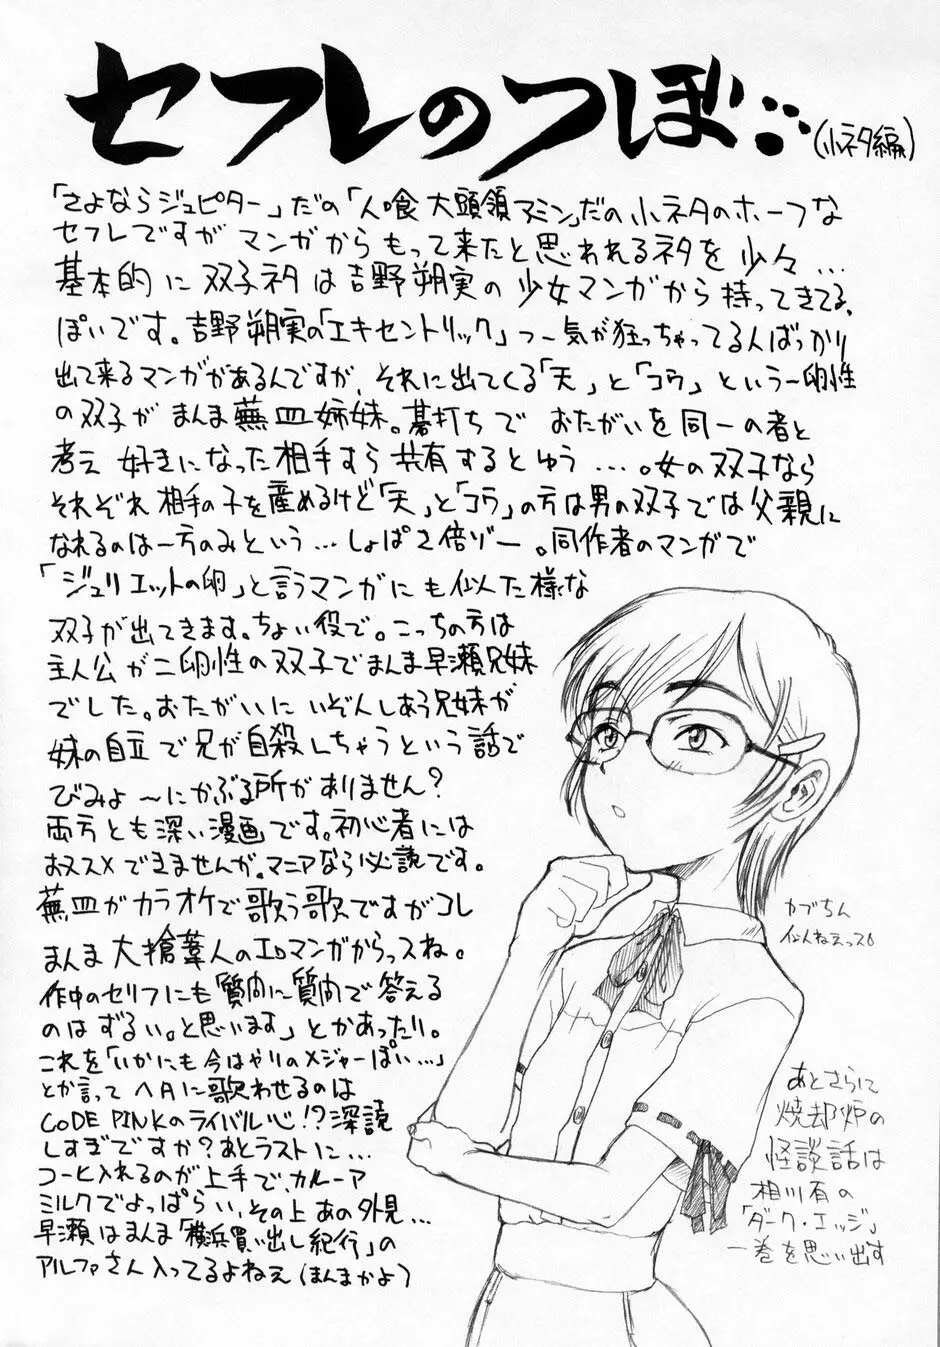 セフレのつぼ…
(小ネタ編)
「さよならジュピター」だの「人喰大頭領アミン」だの小ネタのホーフな
セフレですがマンガからもって来たと思われるネタを少々…
基本的に双子ネタは吉野朔実の少女マンガから持ってきてる、
ぽいです。吉野朔実の「エキセントリック」っー気が狂っちゃってる人ばっかり
出て来るマンガがあるんですが、それに出てくる「天」と「コウ」という一卵性
の双子がまんま蕪皿姉妹。碁打ちでおたがいを同一の者と
考え好きになった相手すら共有するとゆう…。女の双子なら
それぞれ相手の子を産めるけど「天」と「コウ」の方は男の双子では父親に
なれるのは一方のみという…しょぱさ倍ゾー。同作者のマンガで
「ジュリエットの卵」と言うマンガにも似た様な
双子が出てきます。ちょい役で。こっちの方は
主人公が二卵性の双子でまんま早瀬兄妹
でした。おたがいにいぞんしあう兄妹が
妹の自立で兄が自殺しちゃうという話で
びみょ〜にかぶる所がありません?
両方とも深い漫画です。初心者には
おススメできませんが、マニアなら必読です。
蕪皿がカラオケで歌う歌ですがコレ
まんま大槍葦人のエロマンガからっスね。
作中のセリフにも「質問に質問で答える
のはずるい。と思います」とかあったり。
これを「いかにも今はやりのメジャーぽい…」
とか言ってヘタに歌わせるのは
CODE PINKのライバル心!?深読
しすぎですか?あとラストに…
コーヒ入れるのが上手で、カルーア
ミルクでよっぱらい、その上あの外見…
早瀬はまんま「横浜買い出し紀行」の
アルファさん入ってるよねぇ(ほんまかよ)
カブちん
似んねぇっス
あとさらに
焼却炉の
怪談話は
相川有の
「ダーク・エッジ」
一巻を思い出す